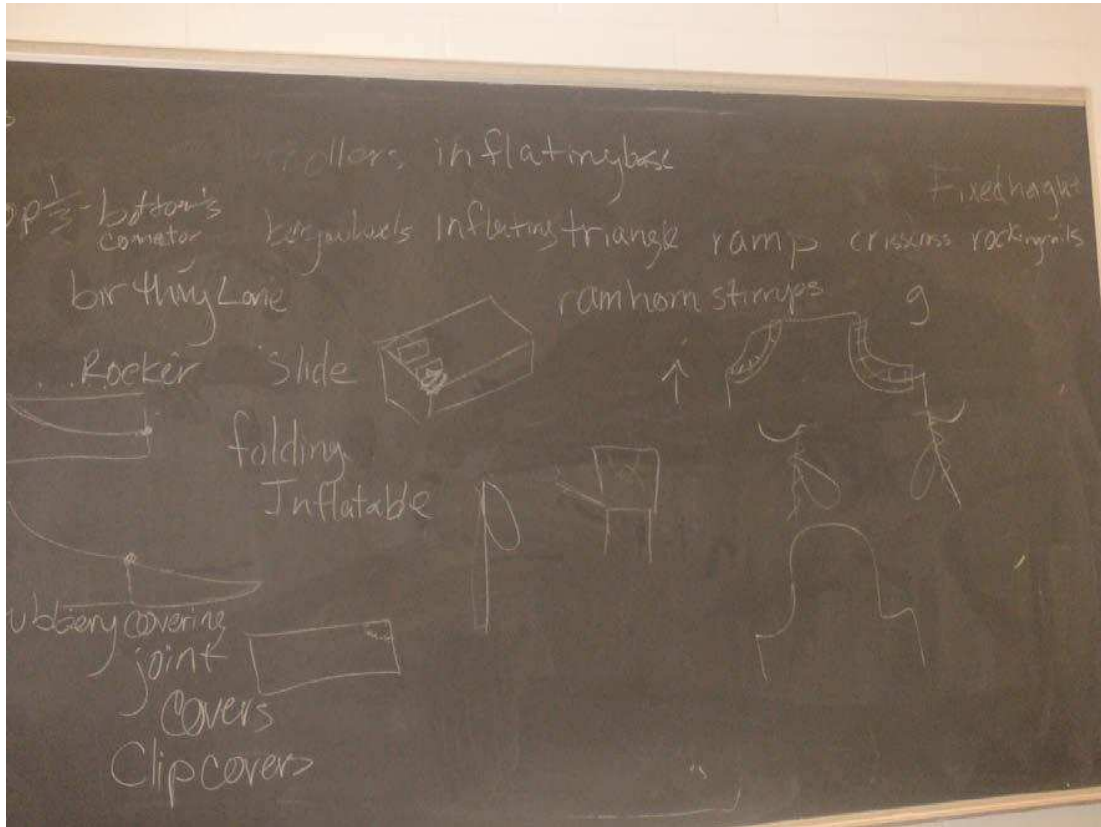 rollers inflating base
Fixed haght
op 1/3 - bottom's
comator
inflating triangle ramp crisscross rockingrails
birthing Lane
ramhorn stirrups g
...Rocker Slide
folding
Inflatable
ubbery covering
joint
covers
Clip covers